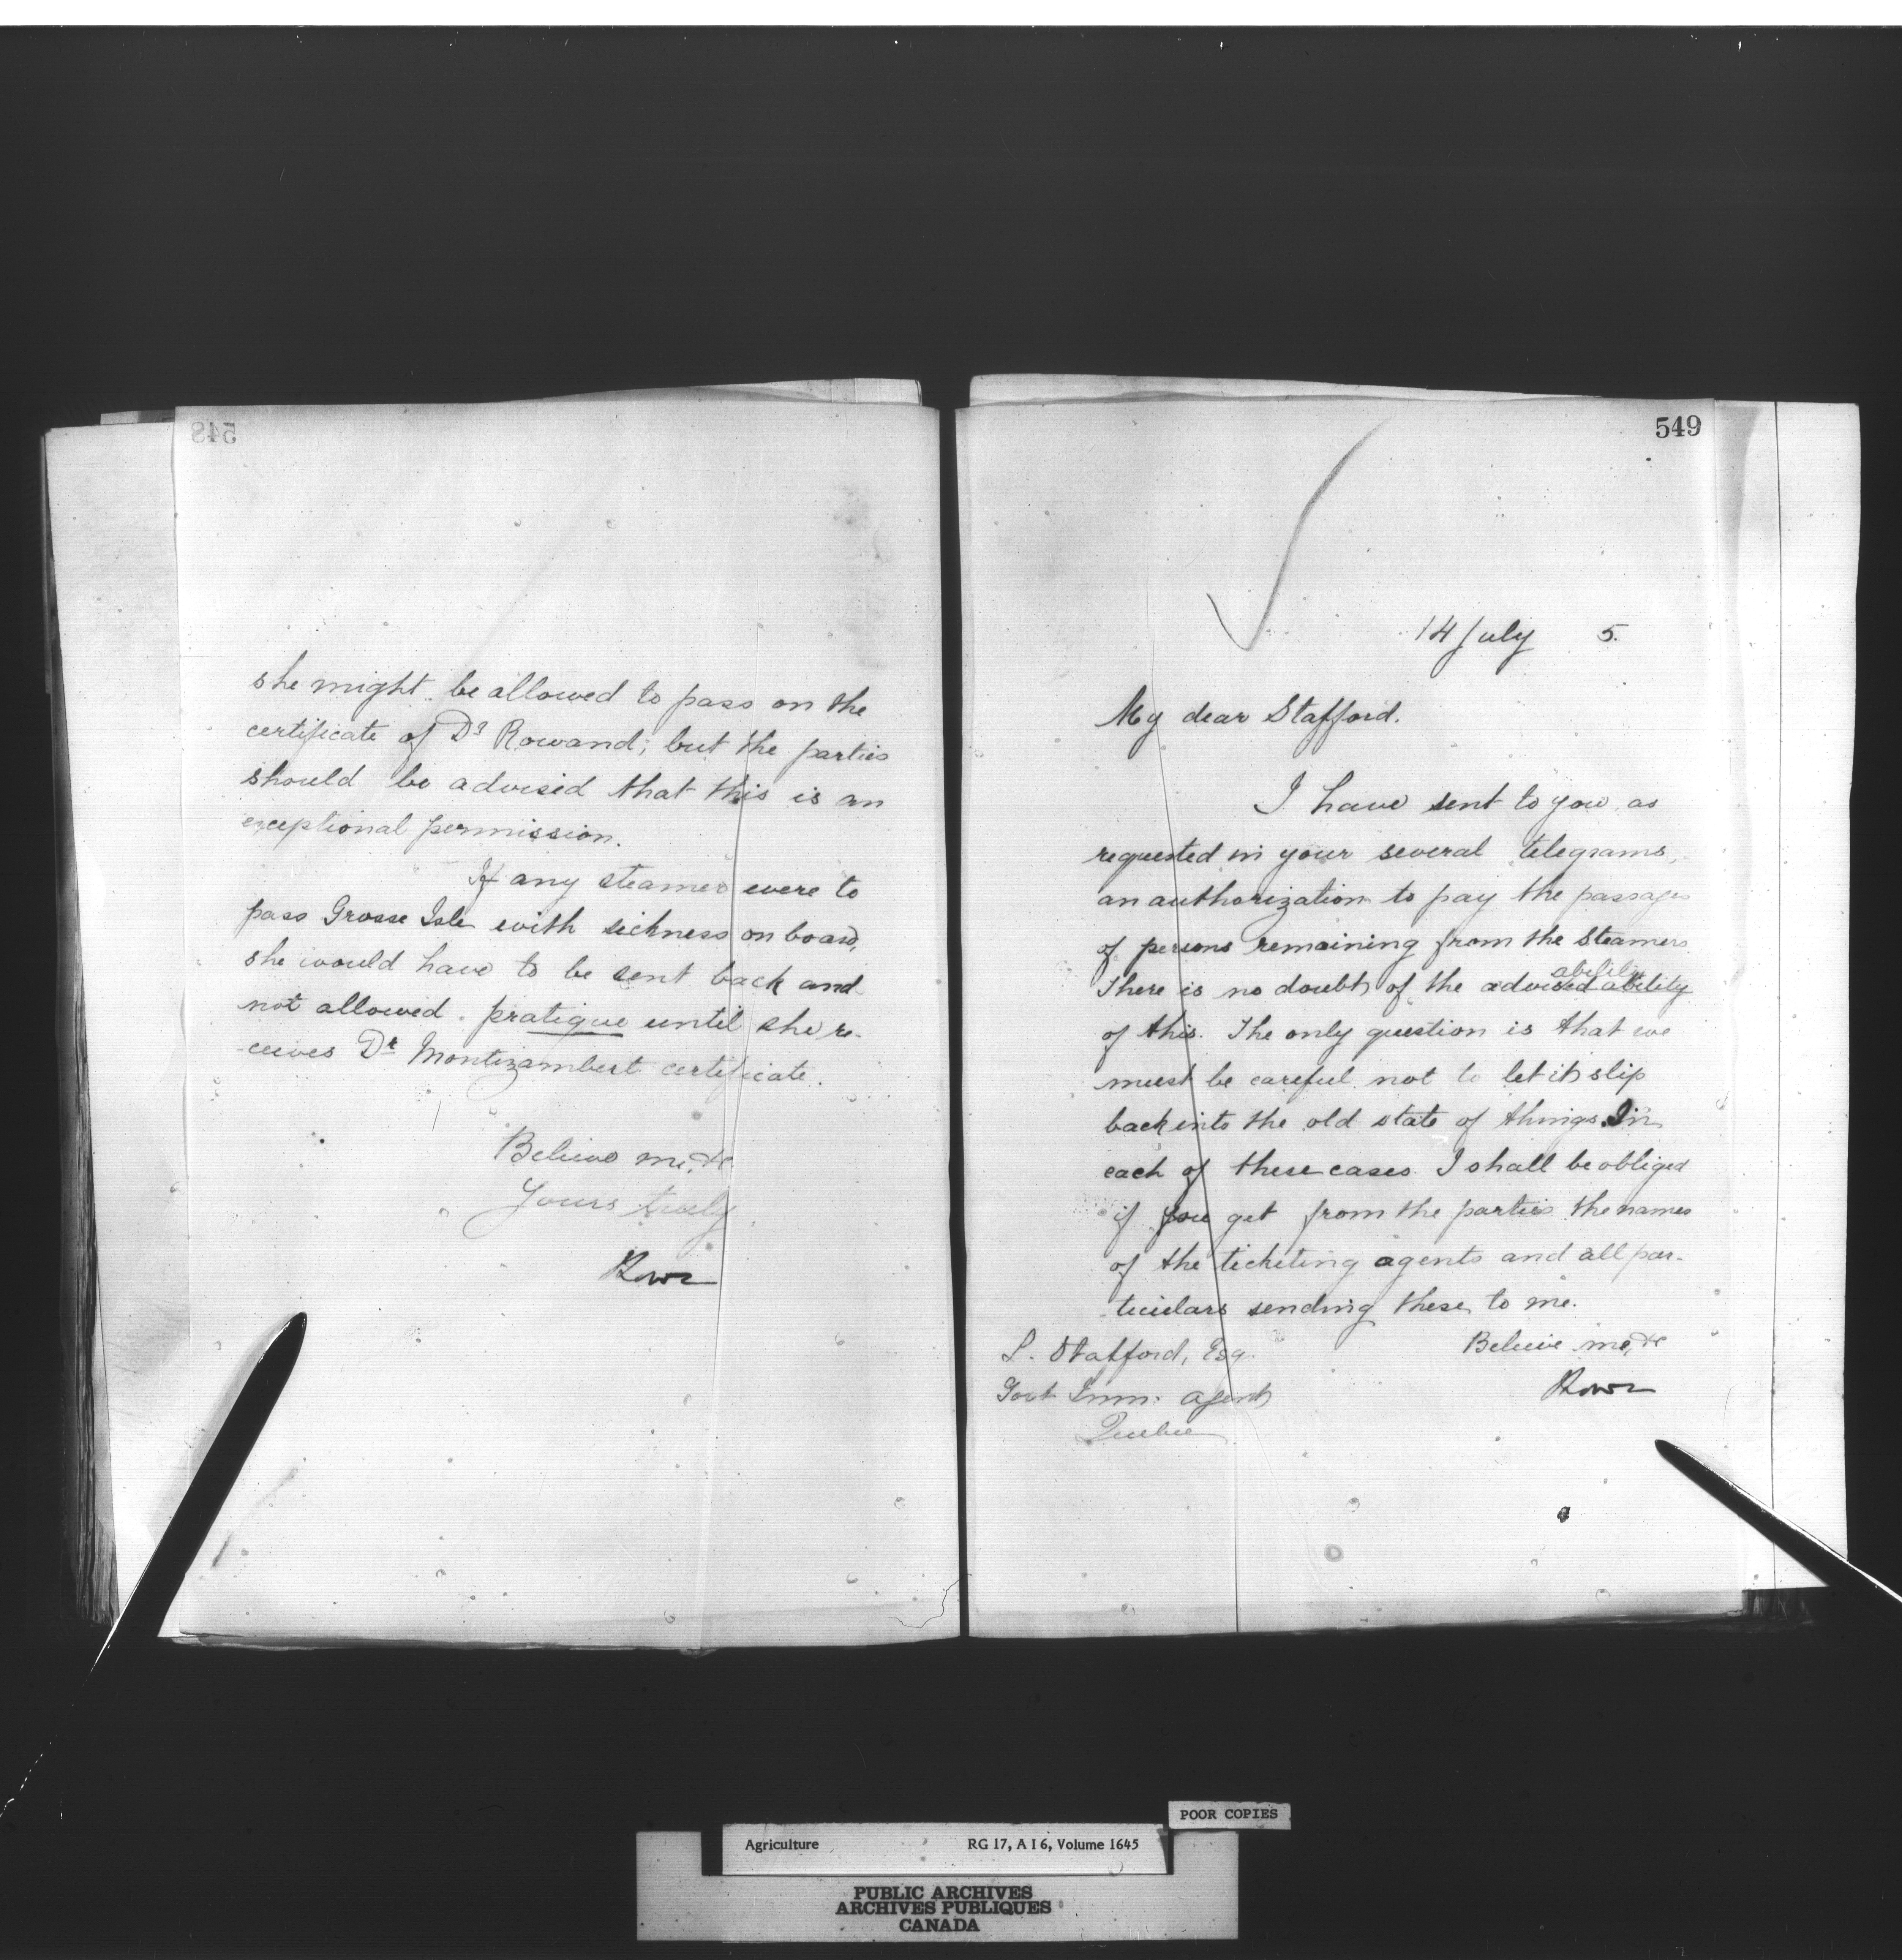 548
she might be allowed to pass on the
certificate of Dr Rowand; but the parties
should be advised that this is an
exceptional permission.
If any steamer were to
pass Grosse Isle with sickness on board,
she would have to be sent back and
not allowed pratique until she re-
-ceives Dr Montizambert certificate.
Believe me, &c
Yours truly
549
14 July 5.
My dear Stafford.
I have sent to you, as
requested in your several telegrams,
an authorization to pay the passages
of persons remaining from the Steamers
ability
There is no doubt of the advised ability
of this. The only question is that we
must be careful not to let it slip
back into the old state of things. In
each of these cases I shall be obliged
if you get from the parties the names
of the ticketing agents and all par-
-ticulars sending these to me.
Believe me, &c
L. Stafford, Esq.
Govt Imm. Agent
Quebec
POOR COPIES
Agriculture RG 17, A I 6, Volume 1645
PUBLIC ARCHIVES
ARCHIVES PUBLIQUES
CANADA